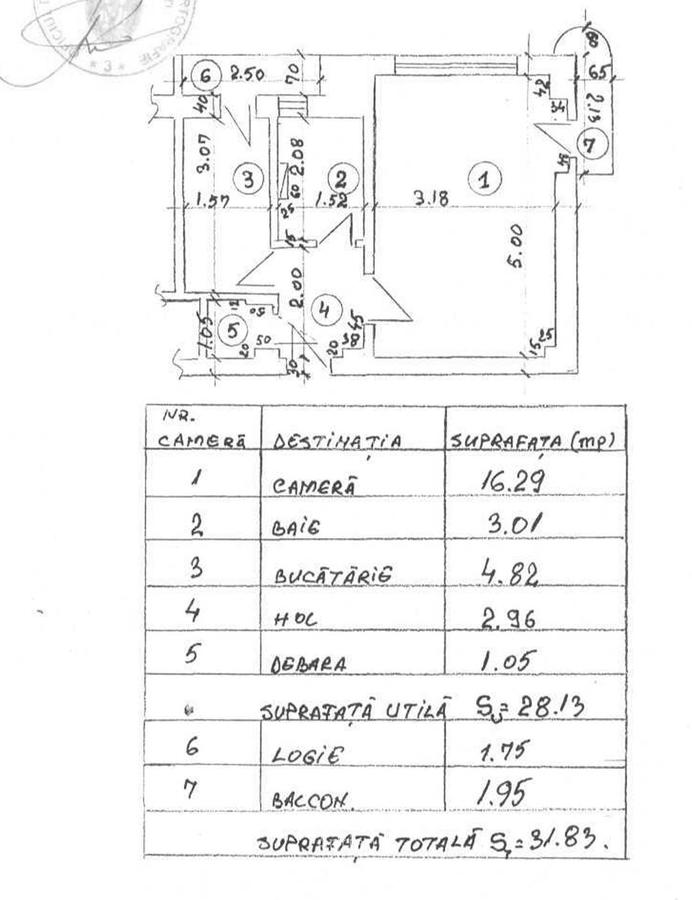 ORTOGRAFIE
* 3 *
6
2.50
70
60
65
40
42
2.13
7
3.07
3
2.08
60
2
1
1.57
25
1.52
3.18
15
5.00
2.00
4
12
50
5
1.05
50
20
30
20
38
45
15
25
NR.
CAMERĂ DESTINAȚIA SUPRAFAȚA (mp)
1 CAMERĂ 16.29
2 BAIE 3.01
3 BUCĂTĂRIE 4.82
4 HOL 2.96
5 DEBARA 1.05
SUPRAFAȚĂ UTILĂ Su= 28.13
6 LOGIE 1.75
7 BALCON. 1.95
SUPRAFAȚĂ TOTALĂ ST= 31.83.